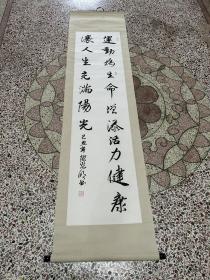 運動為生命增添活力健康
讓人生充滿陽光